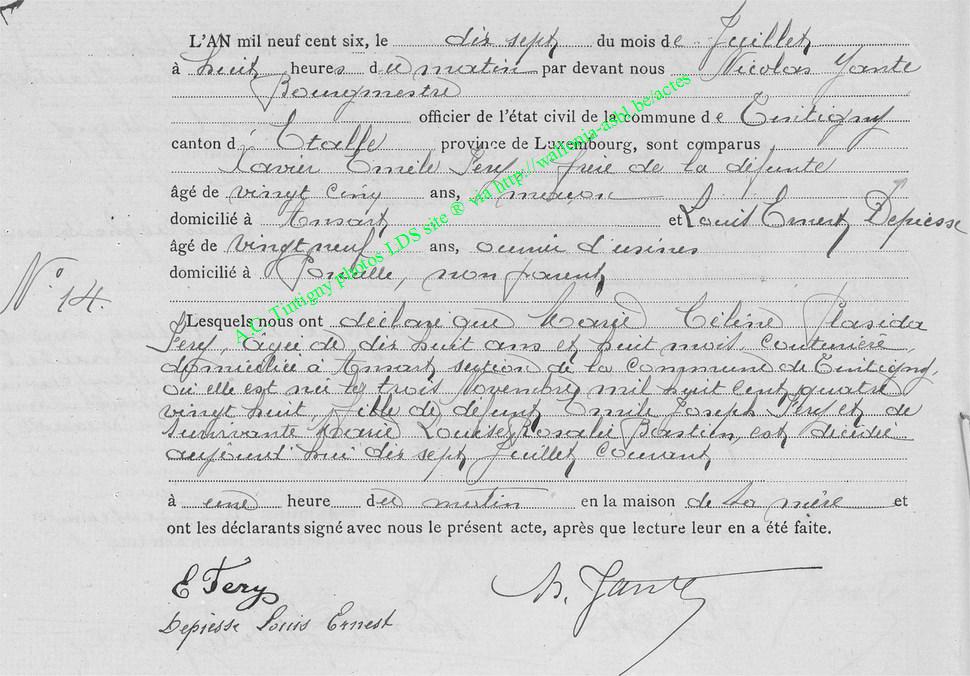 L'AN mil neuf cent six, le dix sept du mois de Juillet
à huit heures du matin par devant nous Nicolas Yante
Bourgmestre
officier de l'état civil de la commune de Tintigny
canton d'Etalle province de Luxembourg, sont comparus
Xavier Emile Fery frère de la défunte
âgé de vingt cinq ans, maçon
domicilié à Ansart et Louis Ernest Depiesse
âgé de vingt neuf ans, ouvrier d'usines
domicilié à Poncelle, non parent
N° 14.
Lesquels nous ont déclaré que Marie Céline Plasida
Fery, âgée de dix huit ans et huit mois, couturière,
domiciliée à Ansart section de la commune de Tintigny,
où elle est née le trois Novembre mil huit cent quatre
vingt huit, fille de défunt Emile Joseph Fery et de
survivante Marie Louise Rosalie Bastien, est décédée
aujourd'hui dix sept Juillet courant
à une heure du matin en la maison de sa mère et
ont les déclarants signé avec nous le présent acte, après que lecture leur en a été faite.
E Fery
N. Yante
Depiesse Louis Ernest
A.C. Tintigny photos LDS site ® via http://wallonia-asbl.be/actes